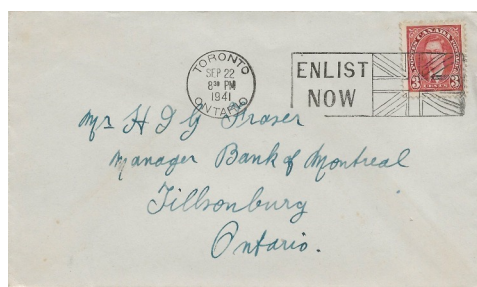 TORONTO
SEP 22
8 30 PM
1941
ONTARIO
ENLIST
NOW
POSTES CANADA POSTAGE
3 CENTS 3
Mr H I G Fraser
Manager Bank of Montreal
Tillsonburg
Ontario.